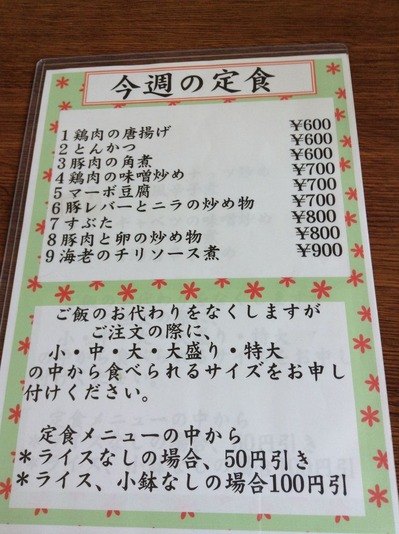 今週の定食
1 鶏肉の唐揚げ ¥600
2 とんかつ ¥600
3 豚肉の角煮 ¥600
4 鶏肉の味噌炒め ¥700
5 マーボ豆腐 ¥700
6 豚レバーとニラの炒め物 ¥700
7 すぶた ¥800
8 豚肉と卵の炒め物 ¥800
9 海老のチリソース煮 ¥900
ご飯のお代わりをなくしますが
ご注文の際に、
小・中・大・大盛り・特大
の中から食べられるサイズをお申し
付けください。
定食メニューの中から
＊ライスなしの場合、50円引き
＊ライス、小鉢なしの場合100円引